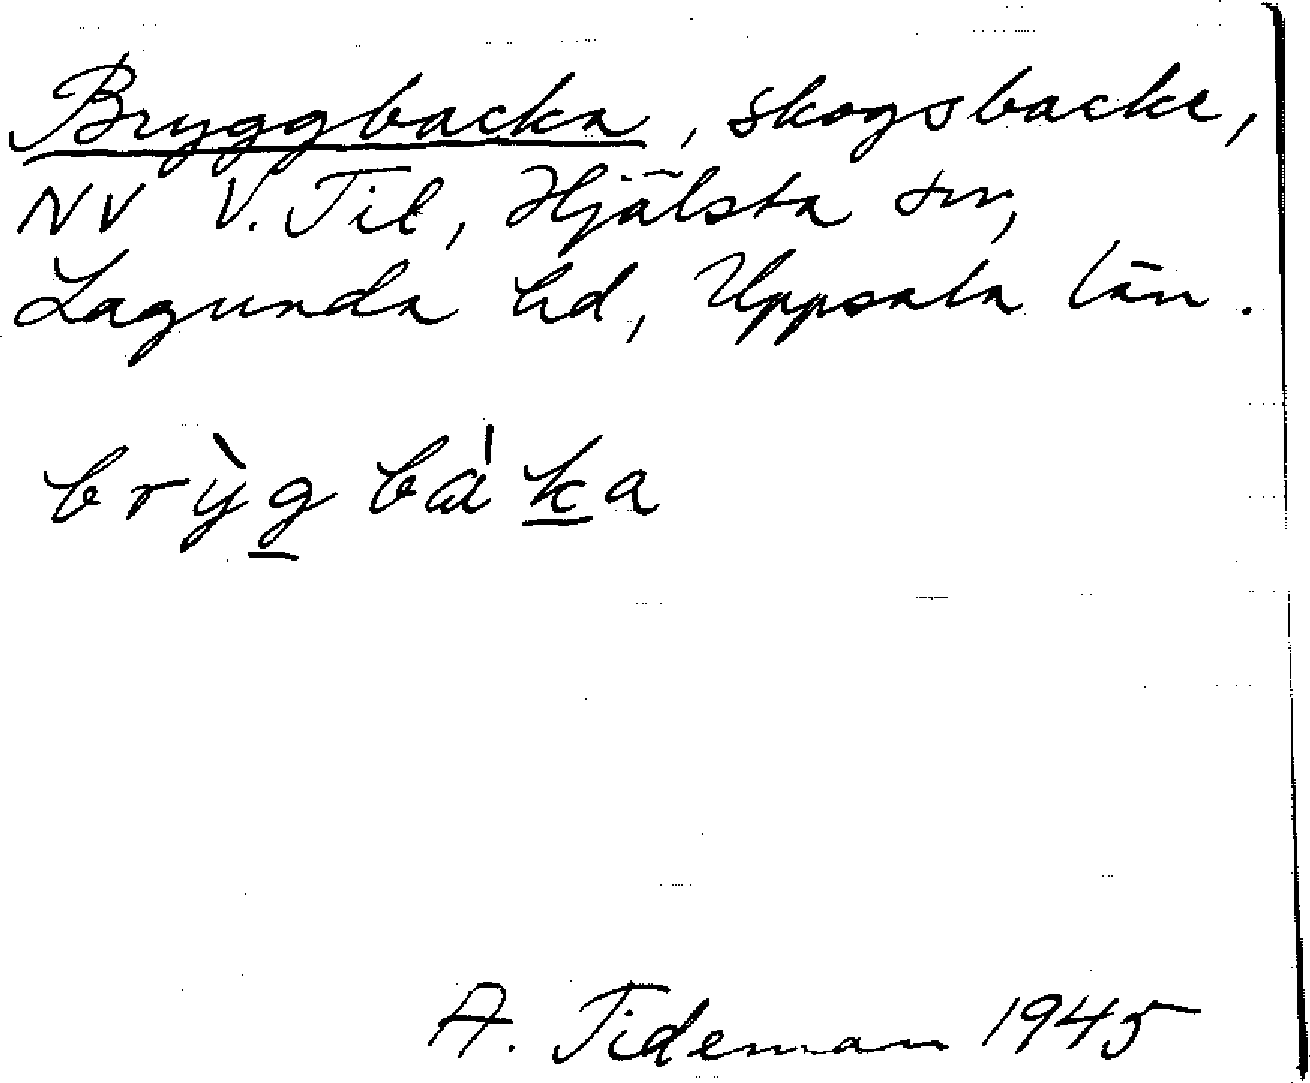 Bryggbacka, skogsbacke,
NV V. Til, Hjälsta sn,
Lagunda hd, Uppsala län.
brỳg báka
A. Tideman 1945